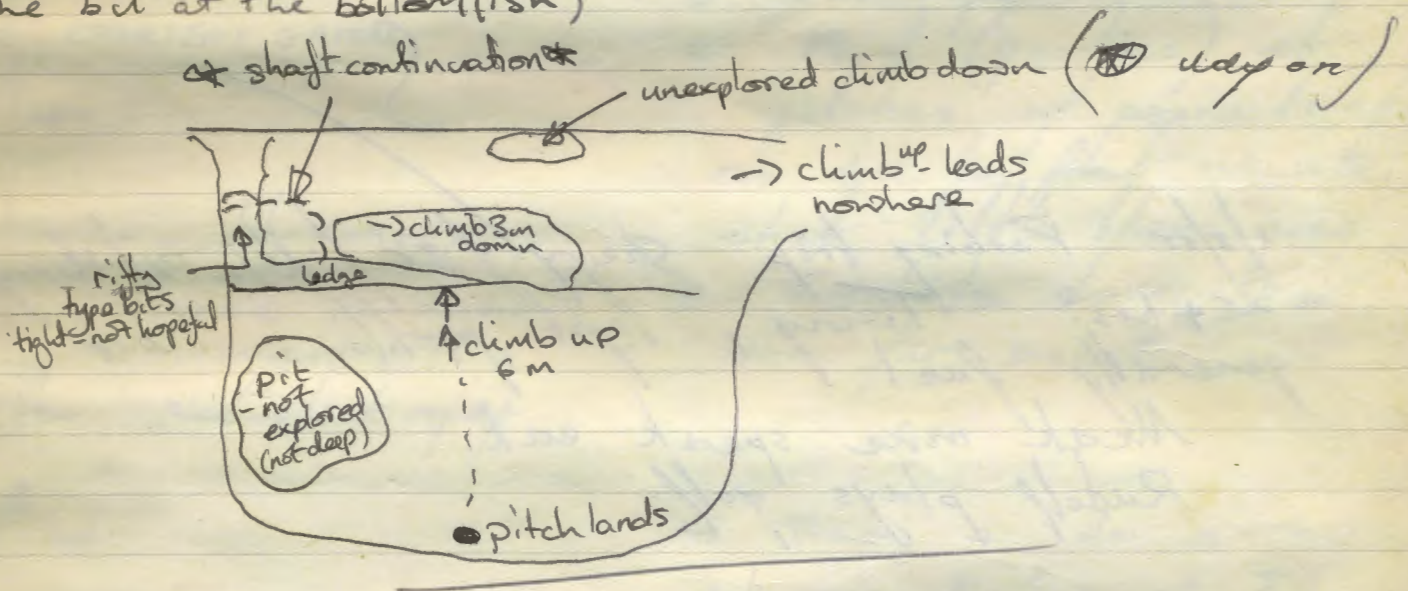 the bit at the bottom (ish)
* shaft continuation *
unexplored climb down (
→ climb up - leads
nowhere
→ climb 3m
down
ledge
rifty
type bits
tight - not hopeful
climb up
6 m
pit
- not
explored
(not deep)
pitch lands